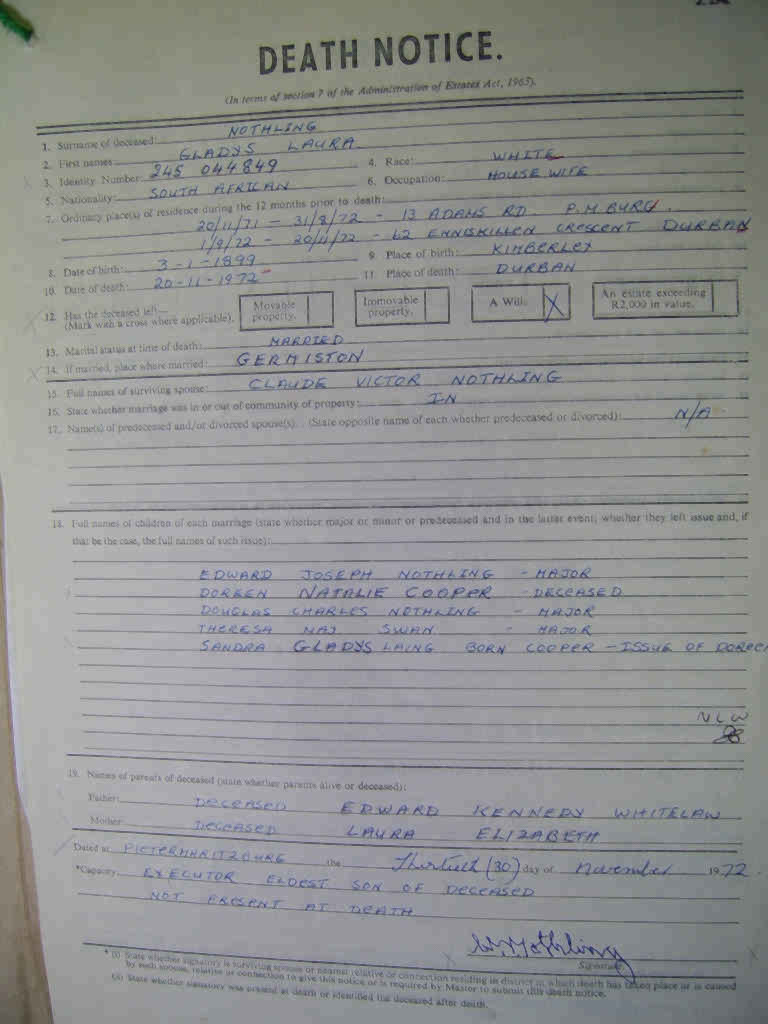 DEATH NOTICE.
(In terms of section 7 of the Administration of Estates Act, 1965).
1. Surname of deceased: NOTHLING
2. First names: GLADYS LAURA
3. Identity Number: 245 044849 4. Race: WHITE
5. Nationality: SOUTH AFRICAN 6. Occupation: HOUSE WIFE
7. Ordinary place(s) of residence during the 12 months prior to death:
20/11/71 - 31/8/72 - 13 ADAMS RD P.M.BURG.
1/9/72 - 20/11/72 - 62 ENNISKILLEN CRESCENT DURBAN
8. Date of birth: 3-1-1899 9. Place of birth: KIMBERLEY
10. Date of death: 20-11-1972 11. Place of death: DURBAN
12. Has the deceased left— Movable property. Immovable property. A Will. X An estate exceeding R2,000 in value.
(Mark with a cross where applicable).
13. Marital status at time of death: MARRIED
14. If married, place where married: GERMISTON
15. Full names of surviving spouse: CLAUDE VICTOR NOTHLING
16. State whether marriage was in or out of community of property: IN
17. Name(s) of predeceased and/or divorced spouse(s). (State opposite name of each whether predeceased or divorced): N/A
18. Full names of children of each marriage (state whether major or minor or predeceased and in the latter event, whether they left issue and, if
that be the case, the full names of such issue):
EDWARD JOSEPH NOTHLING - MAJOR
DOREEN NATALIE COOPER - DECEASED
DOUGLAS CHARLES NOTHLING - MAJOR
THERESA MAJ SWAN - MAJOR
SANDRA GLADYS LAING BORN COOPER - ISSUE OF DOREEN
NLW
19. Names of parents of deceased (state whether parents alive or deceased):
Father: DECEASED EDWARD KENNEDY WHITELAW
Mother: DECEASED LAURA ELIZABETH
Dated at PIETERMARITZBURG the Thirtieth (30) day of November 1972.
*Capacity EXECUTOR ELDEST SON OF DECEASED
NOT PRESENT AT DEATH
Nothling
Signature
* (i) State whether signatory is surviving spouse or nearest relative or connection residing in district in which death has taken place or is caused
by such spouse, relative or connection to give this notice or is required by Master to submit this death notice.
(ii) State whether signatory was present at death or identified the deceased after death.